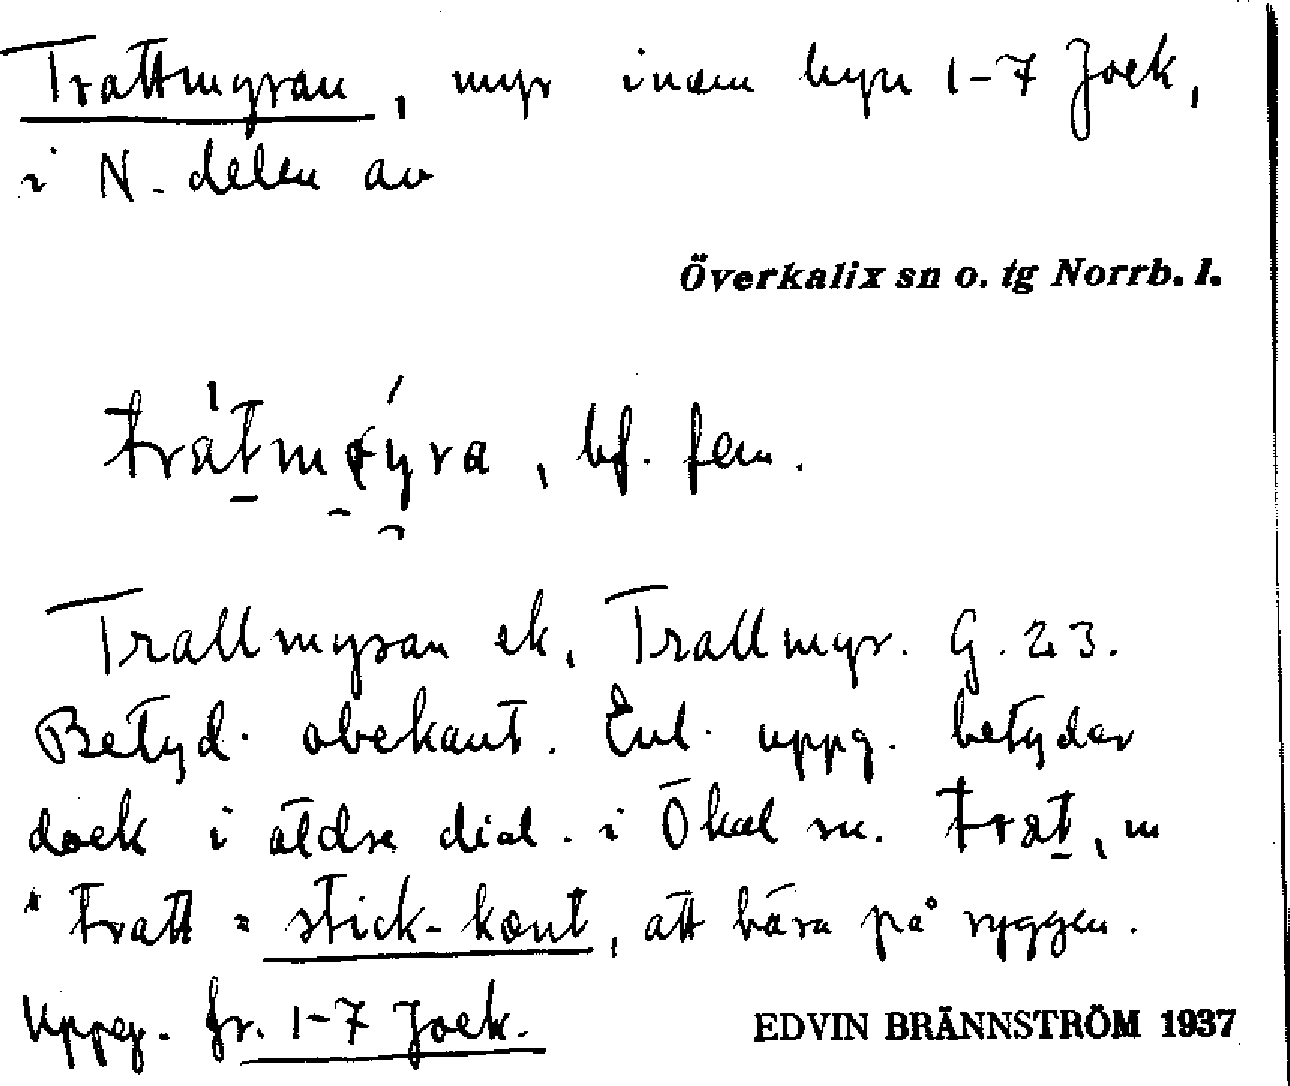 Trattmyran, myr inom byn 1-7 Jock,
i N-delen av
Överkalix sn o. tg Norrb. l.
bf. fem.
Trallmyran ek, Trallmyr. G. 23.
Betyd. obekant. Enl. uppg. betyder
dock i äldre dial. i Ökal sn. trat, m
*tratt = stick-kont, att bära på ryggen.
Uppg. fr. 1-7 Jock.
EDVIN BRÄNNSTRÖM 1937